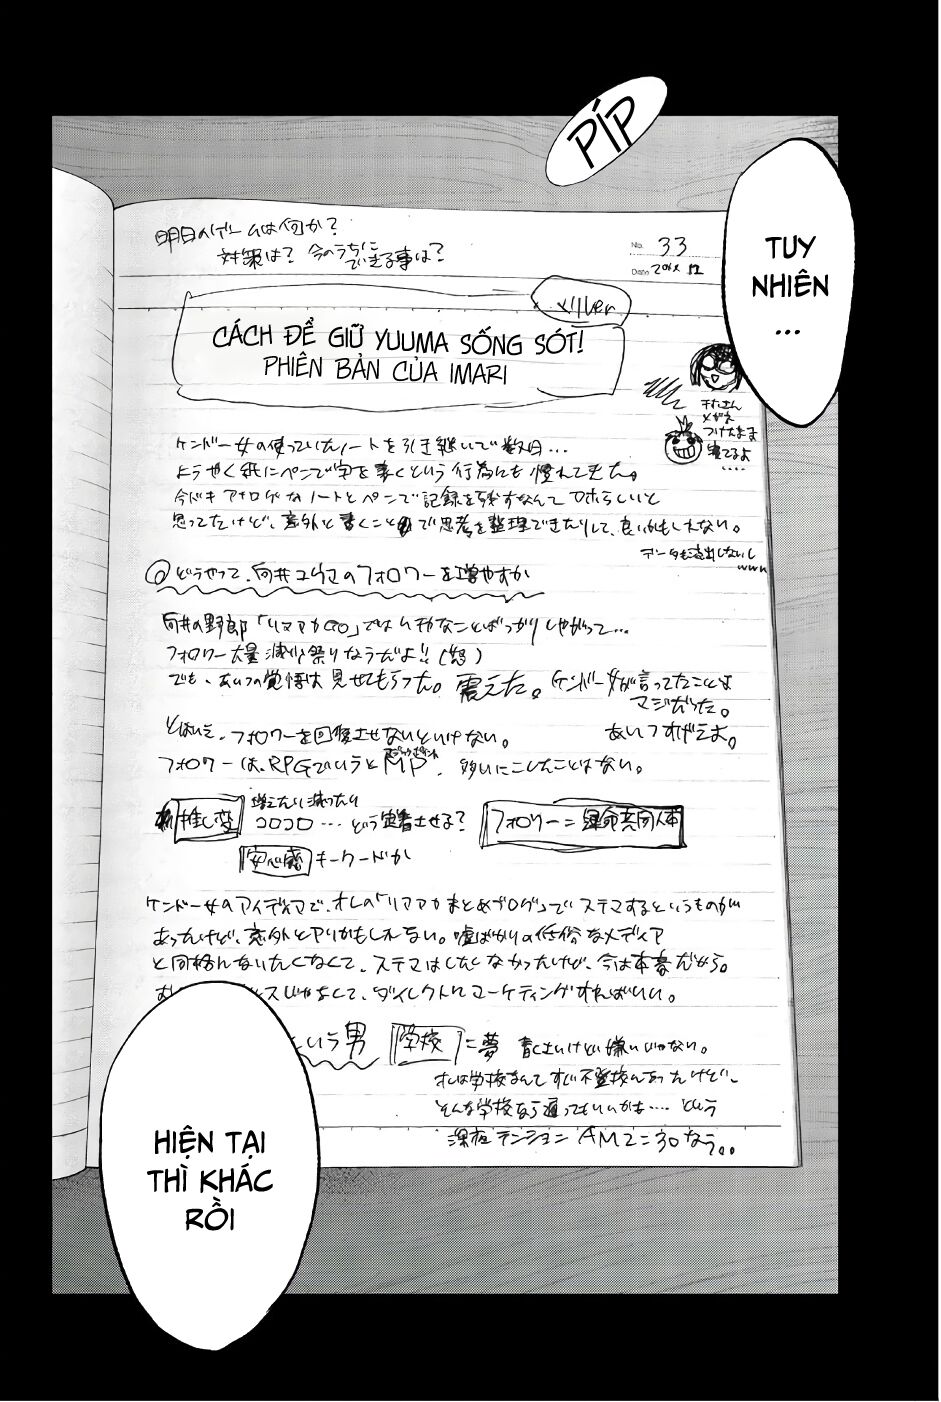 PÍP
TUY
NHIÊN
...
明日のゲームは何か?
対策は? 今のうちに
できる事は?
No. 33
Date
CÁCH ĐỂ GIỮ YUUMA SỐNG SÓT!
PHIÊN BẢN CỦA IMARI
メガネ
つけたまま
寝てるよ
....
ケンドー女の使っていたノートを引き継いで数日...
ようやく紙にペンで字を書くという行為にも慣れてきた。
今どきアナログなノートとペンで記録を残すなんて アホらしいと
思ってたけど、意外と書くことで思考を整理できたりして、良いかもしれない。
データも流出しないし
www
どうやって、向井ユウマのフォロワーを増やすか
向井の野郎「リマアカGO」では ムチャなことばっかりしやがって...
フォロワー大量減少祭りなうだよ!!(怒)
でも、あいつの覚悟は見せてもらった。震えた。ケンドー女が言ってたことは
マジだった。
あいつすげえよ。
とはいえ、フォロワーを回復させないといけない。
フォロワーは、RPGでいうとMP、多いにこしたことはない。
推し変
増えたり減ったり
コロコロ... どう定着させる?
フォロワー=運命共同体
安心感 キーワードか
ケンドー女のアイディアで、オレの「リマアカまとめブログ」でステマするというものが
あったけど、意外とアリかもしれない。嘘ばかりの低俗なメディア
と同格になりたくなくて、ステマはしたくなかったけど、今は本番だから。
じゃなくて、ダイレクトにマーケティングすればいい。
という男 学校=夢 青くさいけど嫌いじゃない。
オレは学校なんてすぐ不登校になったけど、
そんな学校なら通ってもいいかな.... という
深夜テンション AM2:30なう。。
HIỆN TẠI
THÌ KHÁC
RỒI